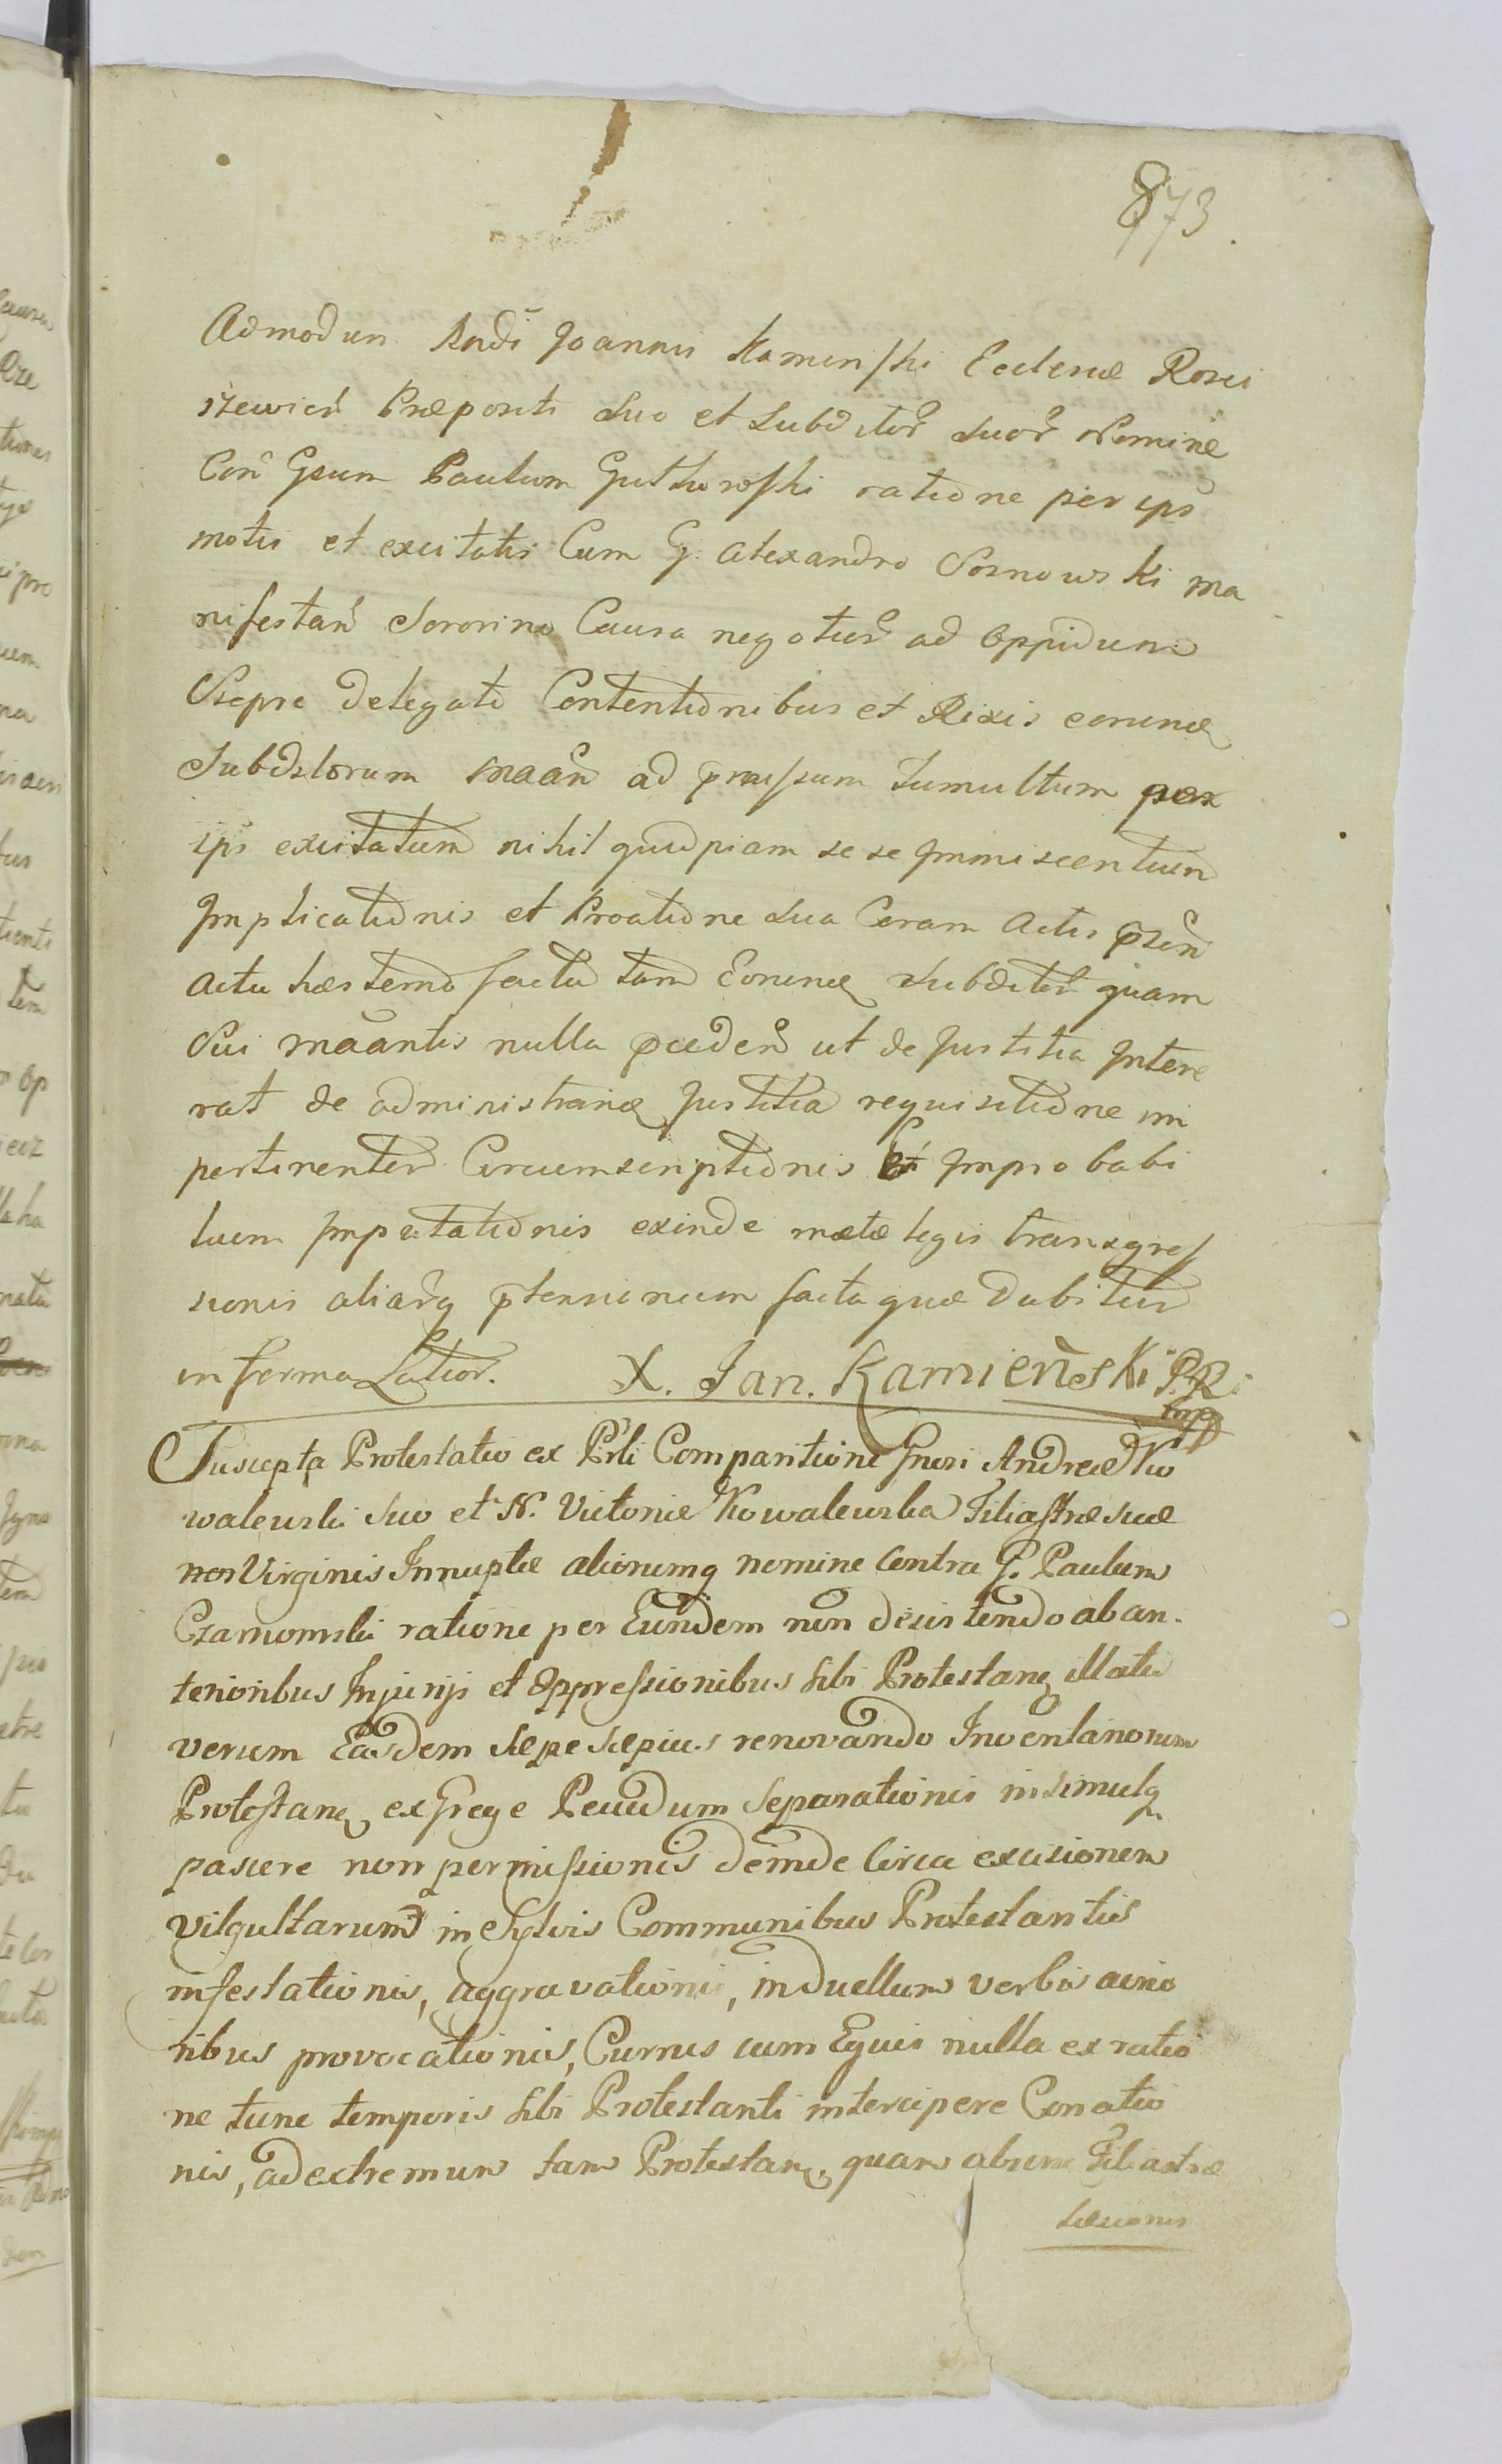 873.
Admodum Rndi Joannis Kaminski Ecclesiæ Rosci
szewicen Præpositi suo et subditor suor Nomine
Con Gsum Paulum Gutkowski ratione per ips
motis et excitatis Cum G. Alexandro Sosnowski ma
nifestan Sororino Causa negotior ad Oppidum
Sieprc delegato Contentionibus et Rixis eorunq
Subditorum maan ad præssum Tumultum per
ips excitatum nihil quidpiam sese Jmmiscentium
Jmplicationis et Proatione sua Coram Actis psen
Actu hæsterno facta tam Eorunq subditor quam
Sui maantis nulla præceden ut de Justitia Jntere
rat de administranq Justitia requisitione im
pertinenter Circumscriptionis et Jmprobabi
lium Jmputationis exinde metæ legis transgres
sionis aliarq ptensionum facta quæ dabitur
in forma Latior. X. Jan. Kamieński P.R.
mp
Suscepta Protestatio ex Prli Comparitione Gnosi Andreæ Ko
walewski suo et N. Victoriæ Kowalewska Filiastræ suæ
non Virginis Innuptæ aliorumq nomine Contra G. Paulum
Czarnomski ratione per Eundem non desistendo ab an-
terioribus Injurijs et Oppressionibus sibi Protestanq illatis
verum Easdem sæpe sæpius renovando Inventariorum
Protestanq ex Grege Pecudum separationis insimulq
pascere non permissionis deinde Circa excisionem
Vilgultarum in Sylvis Communibus Protestantis
infestationis, aggravationis, in duellum verbis acrio
ribus provocationis, Currus cum Equis nulla ex ratio
ne tunc temporis sibi Protestanti intercipere Conatio
nis, ad extremum tam Protestanq, quam Filiastræ
Læsionis